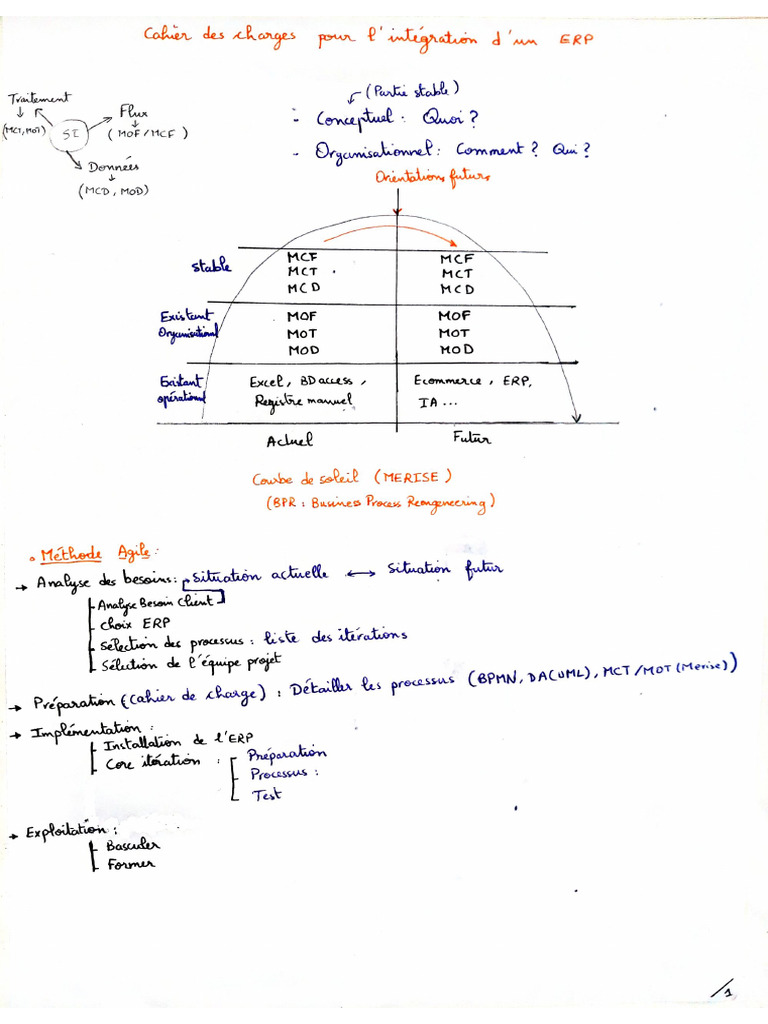 Cahier des charges pour l'intégration d'un ERP
Traitement
(MCT, MOT)
SI
Flux
(MOF/MCF)
Données
(MCD, MOD)
(Partie stable)
- Conceptuel : Quoi ?
- Organisationnel : Comment ? Qui ?
Orientations futurs
Stable
MCF
MCT
MCD
MCF
MCT
MCD
Existant
Organisational
MOF
MOT
MOD
MOF
MOT
MOD
Existant
opérational
Excel, BD access,
Registre manuel
Ecommerce, ERP,
IA ...
Actuel
Futur
Courbe de soleil (MERISE)
(BPR : Business Process Reongeneering)
Méthode Agile :
→ Analyse des besoins : Situation actuelle ↔ Situation futur
Analyse Besoin Client
Choix ERP
Sélection des processus : liste des itérations
Sélection de l'équipe projet
→ Préparation (Cahier de charge) : Détailler les processus (BPMN, DA(UML), MCT/MOT (Merise))
→ Implémentation :
Installation de l'ERP
Core itération : Préparation
Processus :
Test
→ Exploitation :
Basculer
Former
/1